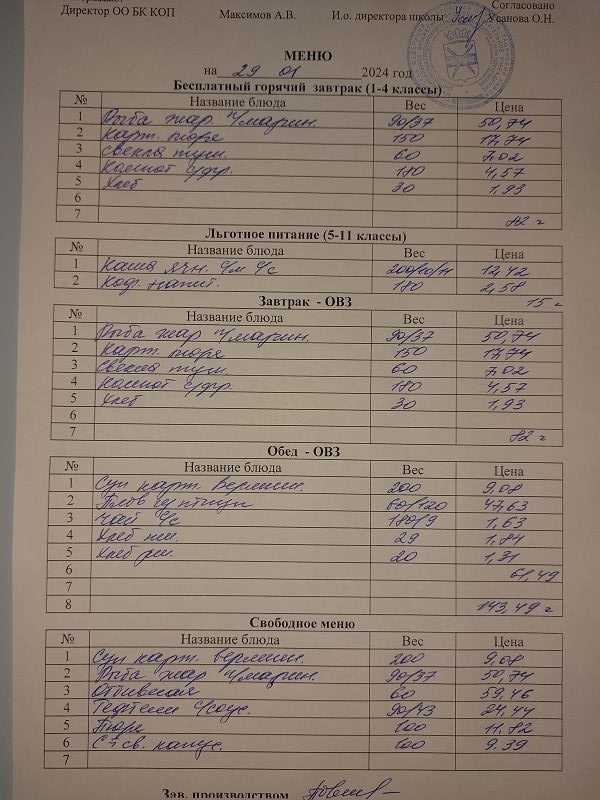 Согласовано
Директор ОО БК КОП Максимов А.В. И.о. директора школы Усанова О.Н.
МЕНЮ
на 29 01 2024 год
Бесплатный горячий завтрак (1-4 классы)
№ Название блюда Вес Цена
1 Рыба жар. ч/марин. 90/37 50,74
2 Карт. пюре 150 17,74
3 Свекла туш. 60 7,02
4 Компот с/фр. 180 4,57
5 Хлеб 30 1,93
6
7 82 =
Льготное питание (5-11 классы)
№ Название блюда Вес Цена
1 Каша ячн. ч/м ч/с 12,42
2 Коф. напит. 180 2,58
15 =
Завтрак - ОВЗ
№ Название блюда Вес Цена
1 Рыба жар ч/марин. 90/37 50,74
2 Карт. пюре 150 17,74
3 Свекла туш. 60 7,02
4 Компот с/фр 180 4,57
5 Хлеб 30 1,93
6
7 82 =
Обед - ОВЗ
№ Название блюда Вес Цена
1 Суп карт. вермиш. 200 9,08
2 Плов из птицы 60/120 47,63
3 Чай ч/с 180/9 1,63
4 Хлеб пш. 29 1,84
5 Хлеб рж. 20 1,31
6 61,49
7
8 143,49 =
Свободное меню
№ Название блюда Вес Цена
1 Суп карт. вермиш. 200 9,08
2 Рыба жар ч/марин. 90/37 50,74
3 Отбивная 60 59,46
4 Тефтели ч/соус. 90/43 24,44
5 Пюре 100 11,82
6 С-т св. капус. 100 9,39
7
Зав. производством